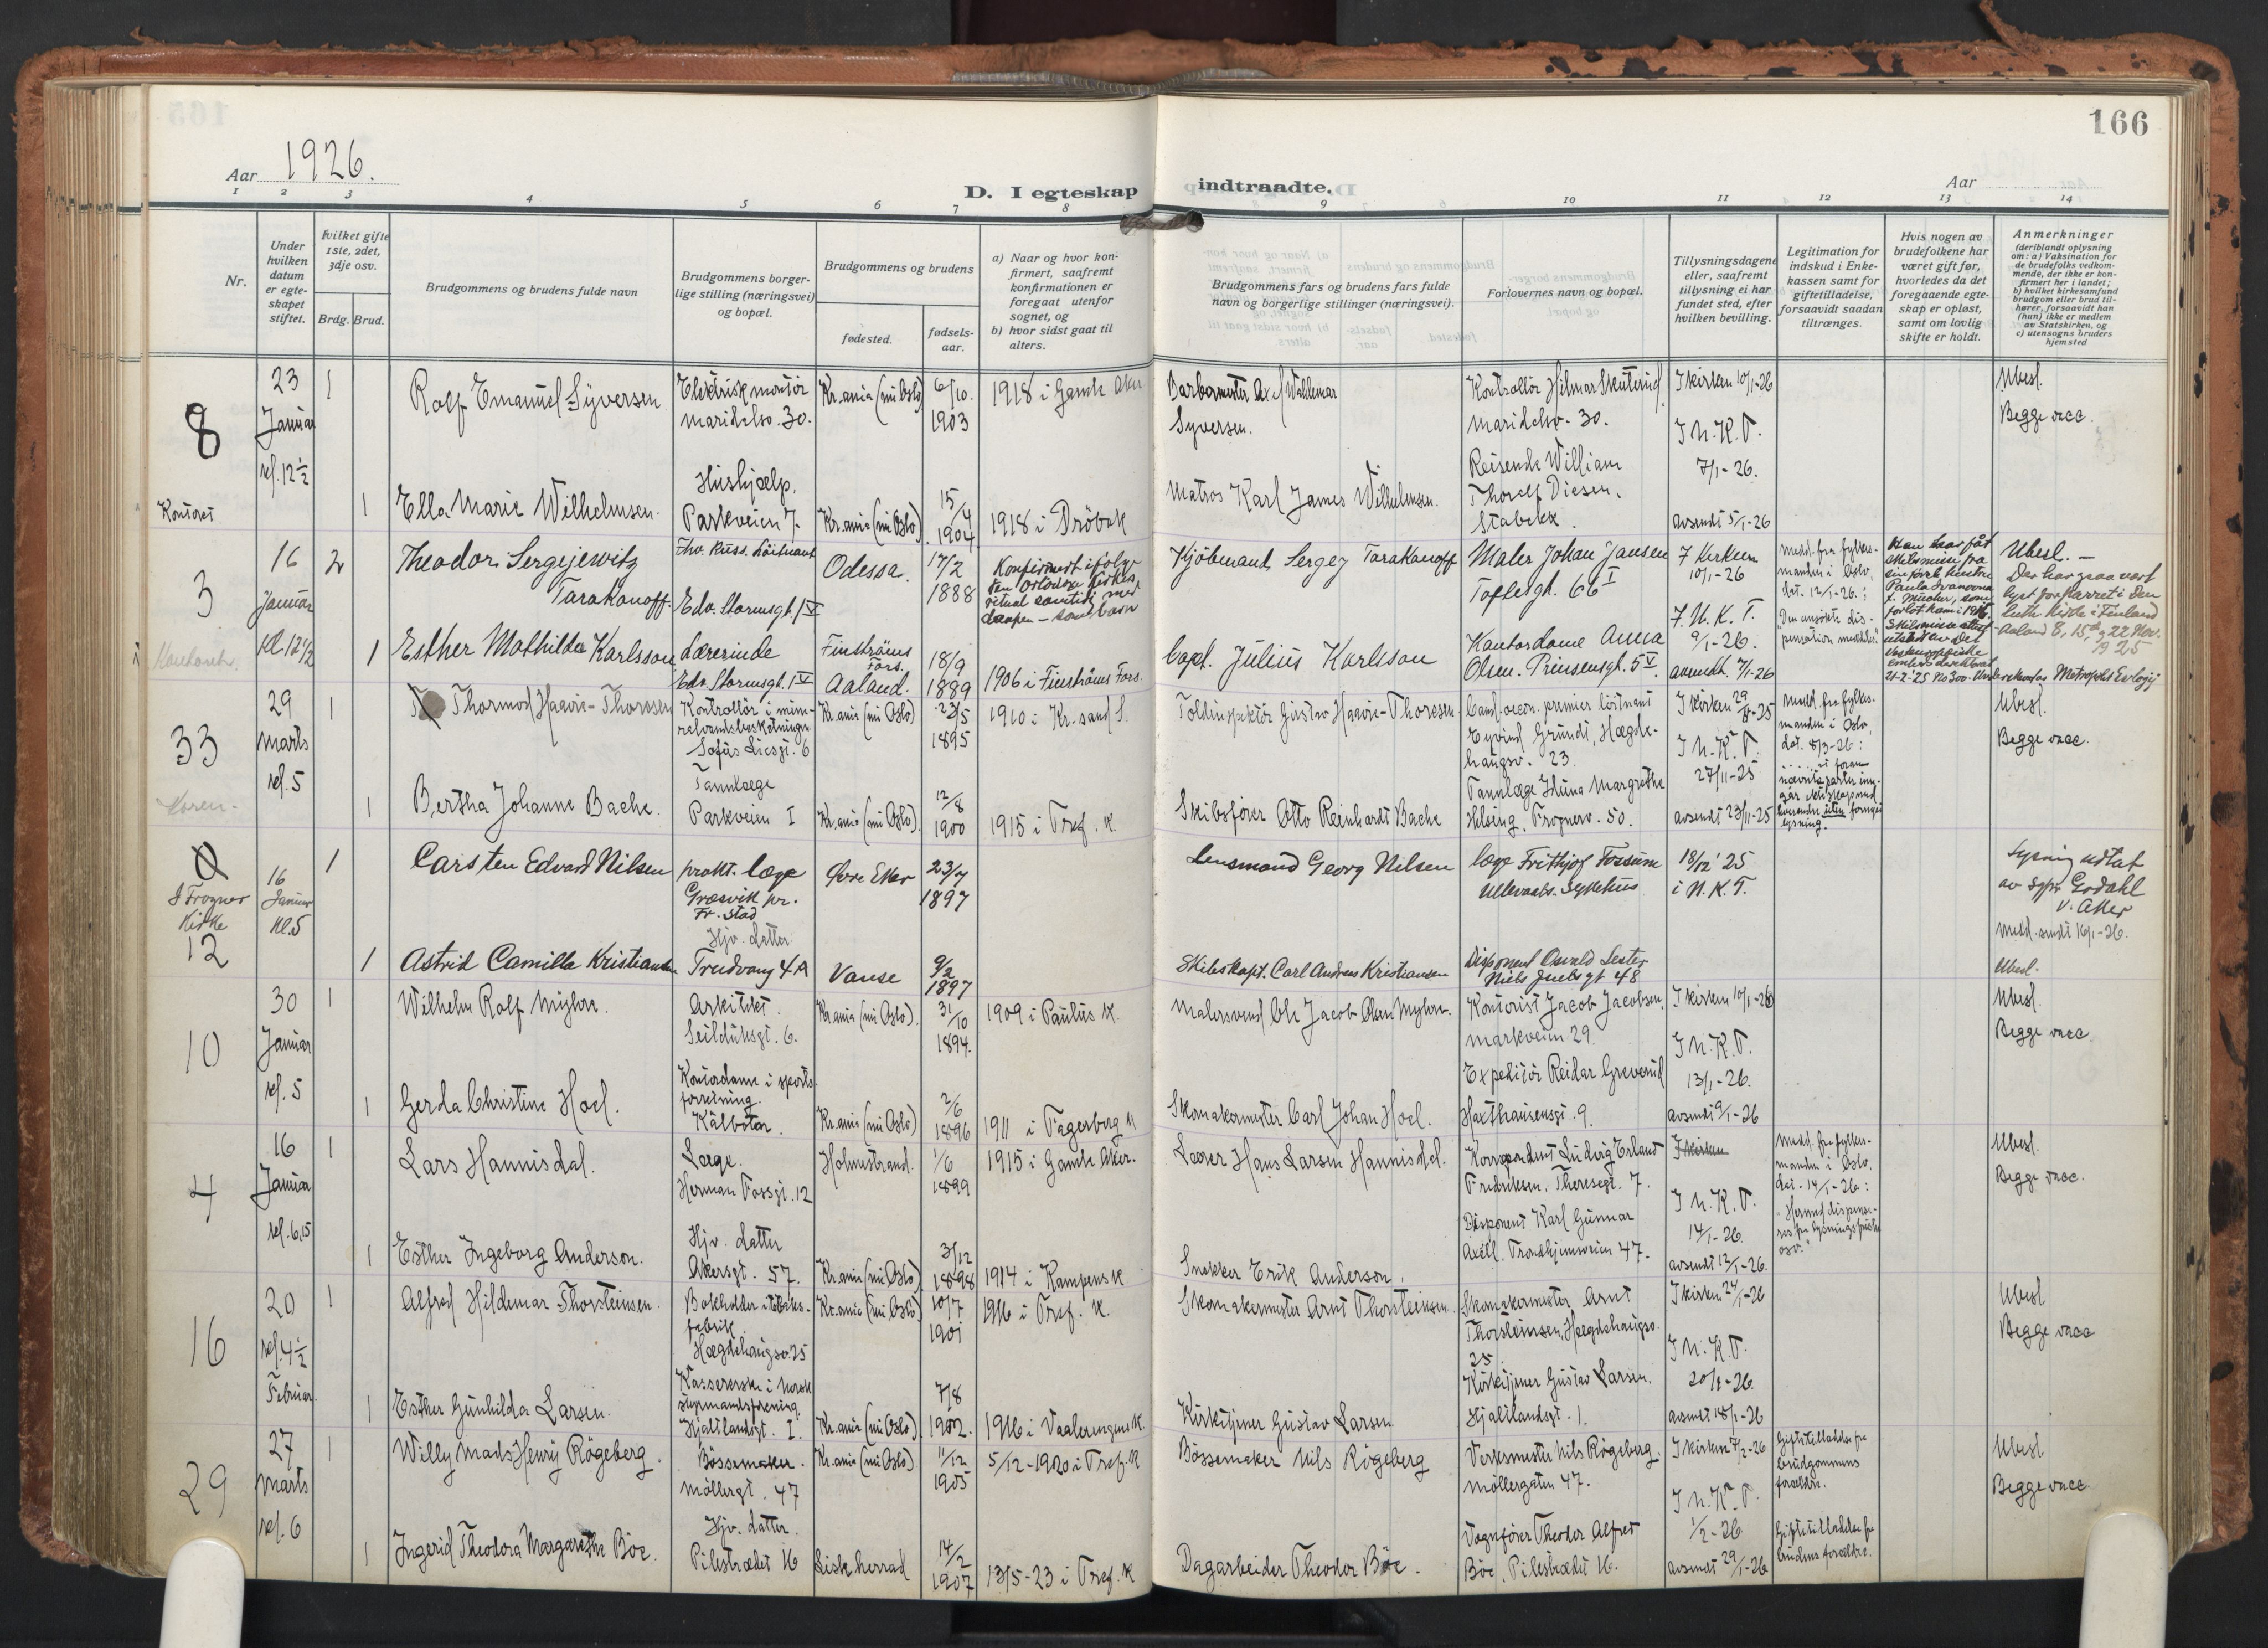 166
Aar 1926.
D. I egteskap indtraadte.
Aar
1 2 3 4 5 6 7 8 9 10 11 12 13 14
Nr.
Under hvilken datum er egte-skapet stiftet.
Hvilket gifte 1ste, 2det, 3dje osv.
Brdg. Brud.
Brudgommens og brudens fulde navn
Brudgommens borger-lige stilling (næringsvei) og bopæl.
Brudgommens og brudens
fødested.
fødsels-aar.
a) Naar og hvor kon-firmert, saafremt konfirmationen er foregaat utenfor sognet, og
b) hvor sidst gaat til alters.
Brudgommens fars og brudens fars fulde navn og borgerlige stillinger (næringsvei).
Forlovernes navn og bopæl.
Tillysningsdagene eller, saafremt tillysning ei har fundet sted, efter hvilken bevilling.
Legitimation for indskud i Enke-kassen samt for giftetilladelse, forsaavidt saadan tiltrænges.
Hvis nogen av brudefolkene har været gift før, hvorledes da det foregaaende egte-skap er opløst, samt om lovlig skifte er holdt.
Anmerkninger
(deriblandt oplysning om: a) Vaksination for de brudefolks vedkom-mende, der ikke er kon-firmert her i landet; b) hvilket kirkesamfund brudgom eller brud til-hører, forsaavidt han (hun) ikke er medlem av Statskirken, og c) utensogns bruders hjemsted
8
Kontoret
23 Januar kl. 12½
1
Rolf Emanuel Syversen
Elektrisk montör
Maridalsv. 30.
Kr.ania (nu Oslo)
6/10. 1903
1918 i Gamle Aker
Barbermester Axel Waldemar Syversen.
Kontrollör Hilmar Skuterud
Maridalsv. 30.
I kirken 10/1-26
I N.K.T.
7/1-26.
Ubesl.
Begge vacc.
1
Ella Marie Wilhelmsen.
Hushjælp.
Parkveien 7.
Kr.ania (nu Oslo).
15/4 1904
1918 i Dröbak
Matros Karl James Wilhelmsen.
Reisende William
Thorolf Diesen.
Stabekk.
avsendt 5/1-26
3
16 Januar Kl 12½
2
Theodor Sergejewitz
Tarakanoff.
Fhv. Russ. Löitnant
Edv. Stormsgt. 1 V
Odessa.
17/2 1888
Konfirmert ifölge
den Ortodoxe Kirkes
ritual samtidig med
daapen - som barn
Kjöbmand Sergej Tarakanoff
Maler Johan Jansen
Toftesgt. 66 I
I Kirken
10/1-26
I N. K. T.
9/1-26.
Medd. fra fylkes-
manden i Oslo,
dat. 12/1-26.:
"Den ansökte dis-
pensation meddeles."
Han har fåt
skilsmisse fra
sin förste hustru
Paula Ivanovna
Ubesl. —
Der har ogsaa vært
lyst for parret i den
luth. Kirke i Finland
Aaland 8, 15 og 22 Nov.
1925
1
Esther Mathilda Karlsson
Lærerinde
Edv. Stormsgt. 1 V
Finströms Fors.
Aaland.
18/9 1889
1906 i Finströms Fors.
Capt. Julius Karlsson
Kontordame Anna
Olsen. Prinsensgt. 5 V
avsendt. 7/1-26
21-2-'25 No 300.
33
29 Marts kl. 5
1
Thormod Haavie-Thoresen
Kontrollör i mine-
ralvandsbeskatningen
Sofus Liesgt. 6
Kr.ania (nu Oslo)
23/5 1895
1910 i Kr.sand S.
Toldinspektör Gustav Haavie-Thoresen
Cand. oecon. premier löitnant
Eyvind Grundt, Hægde-
haugsv. 23.
I kirken 29/11-25
I N.K.T.
27/11-25
Medd. fra fylkes-
manden i Oslo,
dat. 8/3-26:
Ubesl.
Begge vacc.
1
Bertha Johanne Bache.
Tannlæge
Parkveien I
Kr.ania (nu Oslo).
12/8 1900
1915 i Tref. K.
Skibsförer Otto Reinhardt Bache
Tannlæge Iduna Margrethe
Helsing. Frognerv. 50.
avsendt 23/11-25
0
I Frogner
Kirke
12
16 Januar Kl. 5
1
Carsten Edvard Nilsen
prakt. læge
Græsvik pr.
Fr.stad
Övre Eker
23/7 1897
Lensmand Georg Nilsen
læge Frithjof Fossum
Ullevaals Sykehus
18/12 '25
i N. K. T.
Lysning udtat
av Spr. Gerdahl
v. Aker
Medd. sendt 16/1-26.
1
Astrid Camilla Kristiansen
Hjv. datter
Trudvang 4 A
Vanse
9/2 1897
Skibskapt. Carl Andreas Kristiansen
Disponent Osvald Lester
Niels Juels gt 48
Ubesl.
10
30 Januar kl. 5
1
Wilhelm Rolf Myhre.
Arkitekt.
Seilduksgt. 6.
Kr.ania (nu Oslo).
31/10 1894.
1909 i Paulus K.
Malersvend Ole Jacob Olsen Myhre.
Kontorist Jacob Jacobsen.
Markveien 29.
I kirken 10/1-26
I N.K.T.
13/1-26.
Ubesl.
Begge vacc.
1
Gerda Christine Hoel.
Kontordame i sports-
forretning.
Kålbotn.
Kr.ania (nu Oslo)
2/6 1896
1911 i Fagerborg K
Skomakermester Carl Johan Hoel.
Expeditör Reidar Greverud
Haxthausensgt. 9.
avsendt 9/1-26
4
16 Januar kl. 6,15
1
Lars Hannisdal.
Læge.
Herman Fossgt. 12
Holmestrand.
1/6 1899
1915 i Gamle Aker.
Lærer Hans Larsen Hannisdal.
Korrespondent Ludvig Erland
Fredriksen. Theresegt. 7.
I kirken
I N.K.T.
14/1-26.
Medd. fra fylkes-
manden i Oslo,
dat. 14/1-26:
"Herved dispense-
res fra lysningsfristen
osv."
Ubesl.
Begge vacc.
1
Esther Ingeborg Anderson.
Hjv. datter
Akersgt. 57.
Kr.ania (nu Oslo)
3/12 1898
1914 i Kampens K
Snekker Erik Anderson.
Disponent Karl Gunnar
Axell. Trondhjemsveien 47.
avsendt 12/1-26.
16
20 kl. 4½ Februar
1
Alfred Hildemar Thorsteinsen.
Bokholder i tobaks-
fabrik
Hægdehaugsv. 25
Kr.ania (nu Oslo)
10/7 1901
1916 i Tref. K.
Skomakermester Arnt Thorsteinsen.
Skomakermester Arnt
Thorsteinsen, Hægdehaugsv.
25.
I kirken 24/1-26
I N.K.T.
20/1-26.
Ubesl
Begge vacc
1
Esther Gunhilda Larsen.
Kassererske i Norsk
styrmandsforening.
Hjaltlandsgt. I.
Kr.ania (nu Oslo)
7/8 1902.
1916 i Vaalerengens K.
Kirketjener Gustav Larsen
Kirketjener Gustav Larsen.
Hjaltlandsgt. 1.
avsendt 18/1-26
29
27 Marts kl. 6
1
Willy Mads Henry Rögeberg.
Bössemaker.
Möllergt. 47
Kr.ania (nu Oslo).
11/12 1905
5/12-1920 i Tref. K
Bössemaker Nils Rögeberg
Verksmester Nils Rögeberg.
Möllergaten 47.
I kirken 7/2-26
I N.K.T.
1/2-26
Giftetilladelse fra
brudgommens
forældre.
Ubesl
Begge vacc.
1
Ingerid Theodora Margarethe Böe.
Hjv. datter.
Pilestrædet 16
Eisk herrad
14/2 1907
13/5-23 i Tref. K
Dagarbeider Theodor Böe.
Vognförer Theodor Alfred
Böe, Pilestrædet 16.
avsendt 29/1-26
Giftetilladelse fra
brudens forældre.